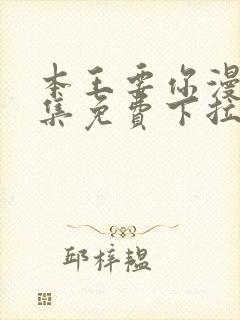 本王要你漫
集免费下拉
邱梓韫